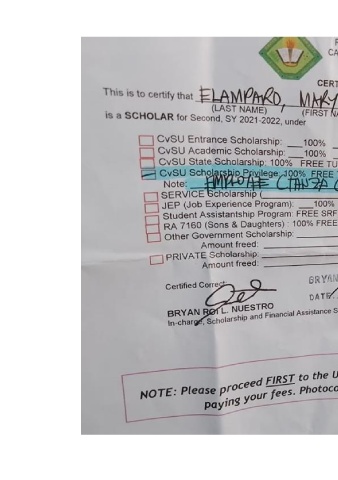 CERT
This is to certify that ELAMPARD, MARY
(LAST NAME) (FIRST NA
is a SCHOLAR for Second, SY 2021-2022, under
CvSU Entrance Scholarship: ___100%
CvSU Academic Scholarship: ___100%
CvSU State Scholarship: 100% FREE TU
CvSU Scholarship Privilege: 100% FREE
Note: EMPLOYEE
SERVICE Scholarship (
JEP (Job Experience Program): ___100%
Student Assistantship Program: FREE SRF
RA 7160 (Sons & Daughters) : 100% FREE
Other Government Scholarship:
Amount freed:
PRIVATE Scholarship:
Amount freed:
Certified Correct:
BRYAN
DATE:
BRYAN ROI L. NUESTRO
In-charge, Scholarship and Financial Assistance S
NOTE: Please proceed FIRST to the U
paying your fees. Photoco